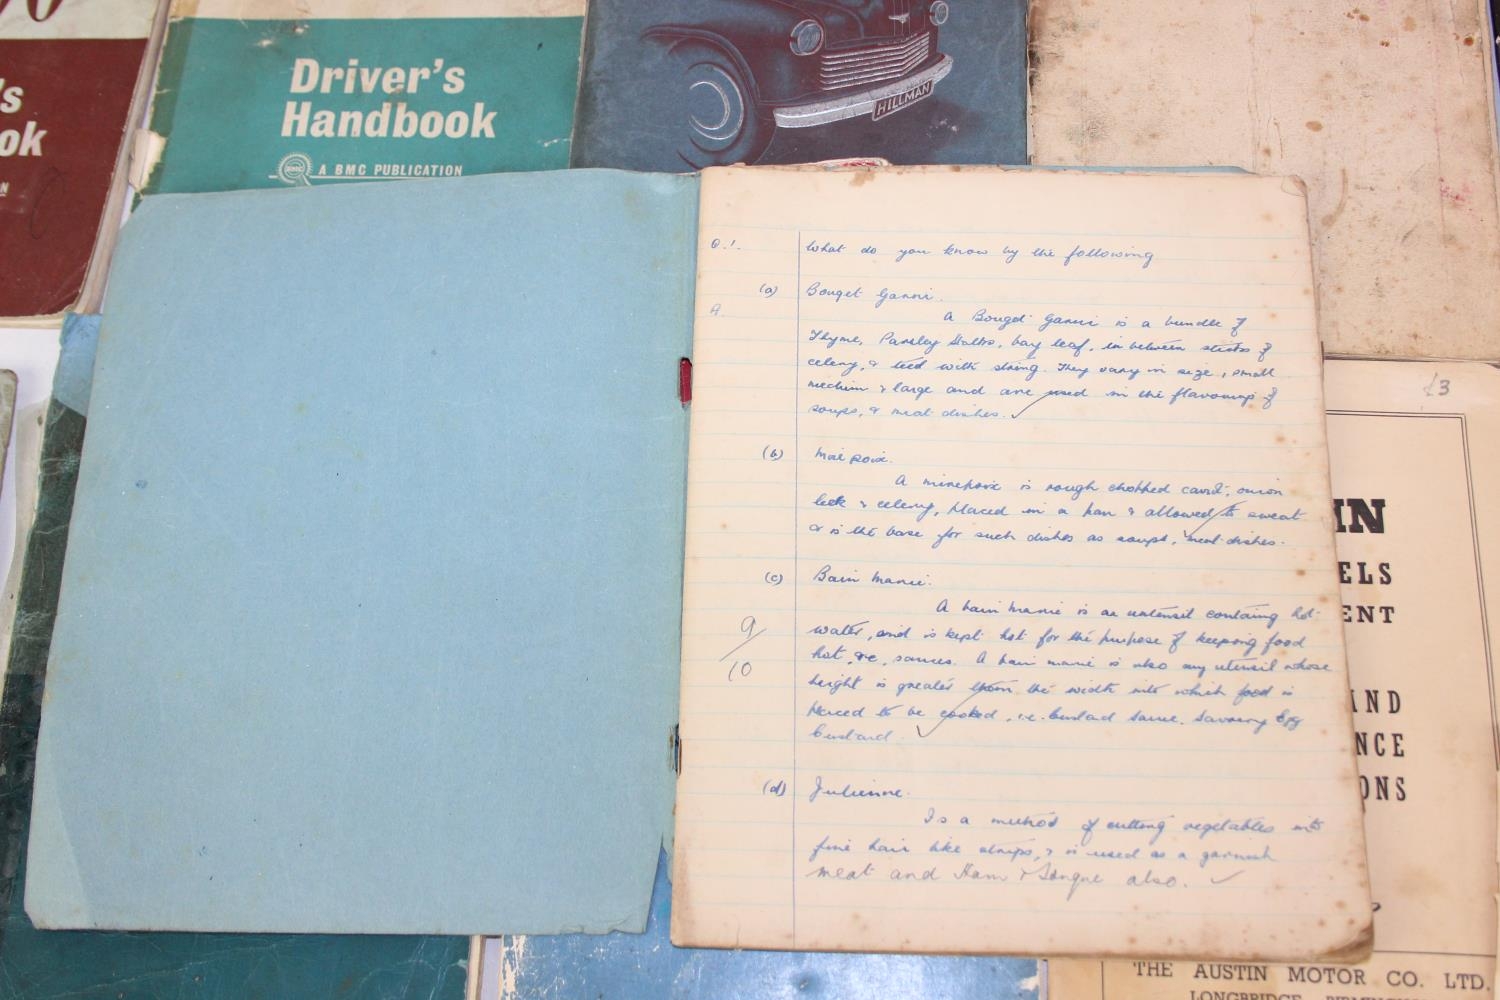 's
ok
Driver's
Handbook
BMC
A BMC PUBLICATION
HILLMAN
Q.1. What do you know by the following
(a) Bouget Garni.
A. A Bouget Garni is a bundle of
Thyme, Parsley Stalks, bay leaf, in between sticks of
celery, & tied with string. They vary in size, small
medium & large and are used in the flavouring of
soups, & meat dishes.
(b) Mirepoix.
A mirepoix is rough chopped carrot, onion
leek & celery, placed in a pan & allowed to sweat
& is the base for such dishes as soups, meat-dishes.
(c) Bain Marie.
A bain marie is an utensil containg hot
water, and is kept hot for the purpose of keeping food
hot, sauces. A bain marie is also any utensil whose
height is greater than the width into which food is
placed to be cooked, i.e. Custard Sauce. Savoury Egg
Custard.
9/10
(d) Julienne.
Is a method of cutting vegetables into
fine hair like strips, & is used as a garnish
meat and Ham & Tongue also.
£3
IN
ELS
ENT
AND
NCE
ONS
THE AUSTIN MOTOR CO. LTD.